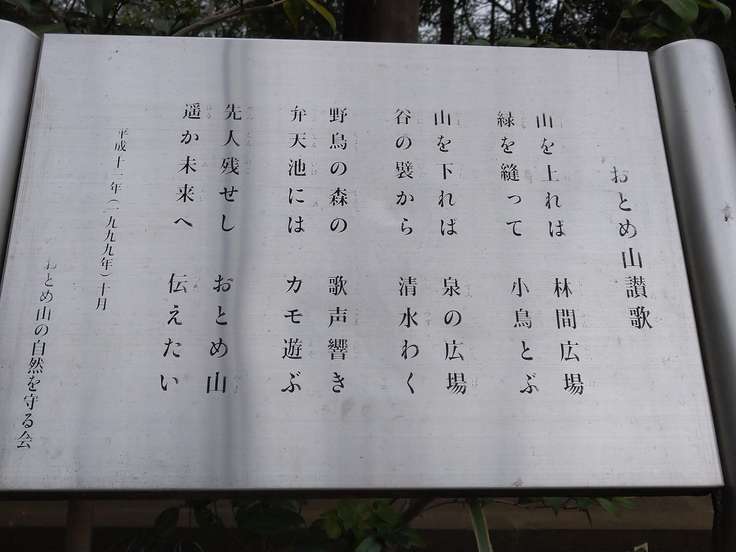 おとめ山讃歌
山を上れば 林間広場
緑を縫って 小鳥とぶ
山を下れば 泉の広場
谷の襞から 清水わく
野鳥の森の 歌声響き
弁天池には カモ遊ぶ
先人残せし おとめ山
遥か未来へ 伝えたい
平成十一年(一九九九年)十月
おとめ山の自然を守る会